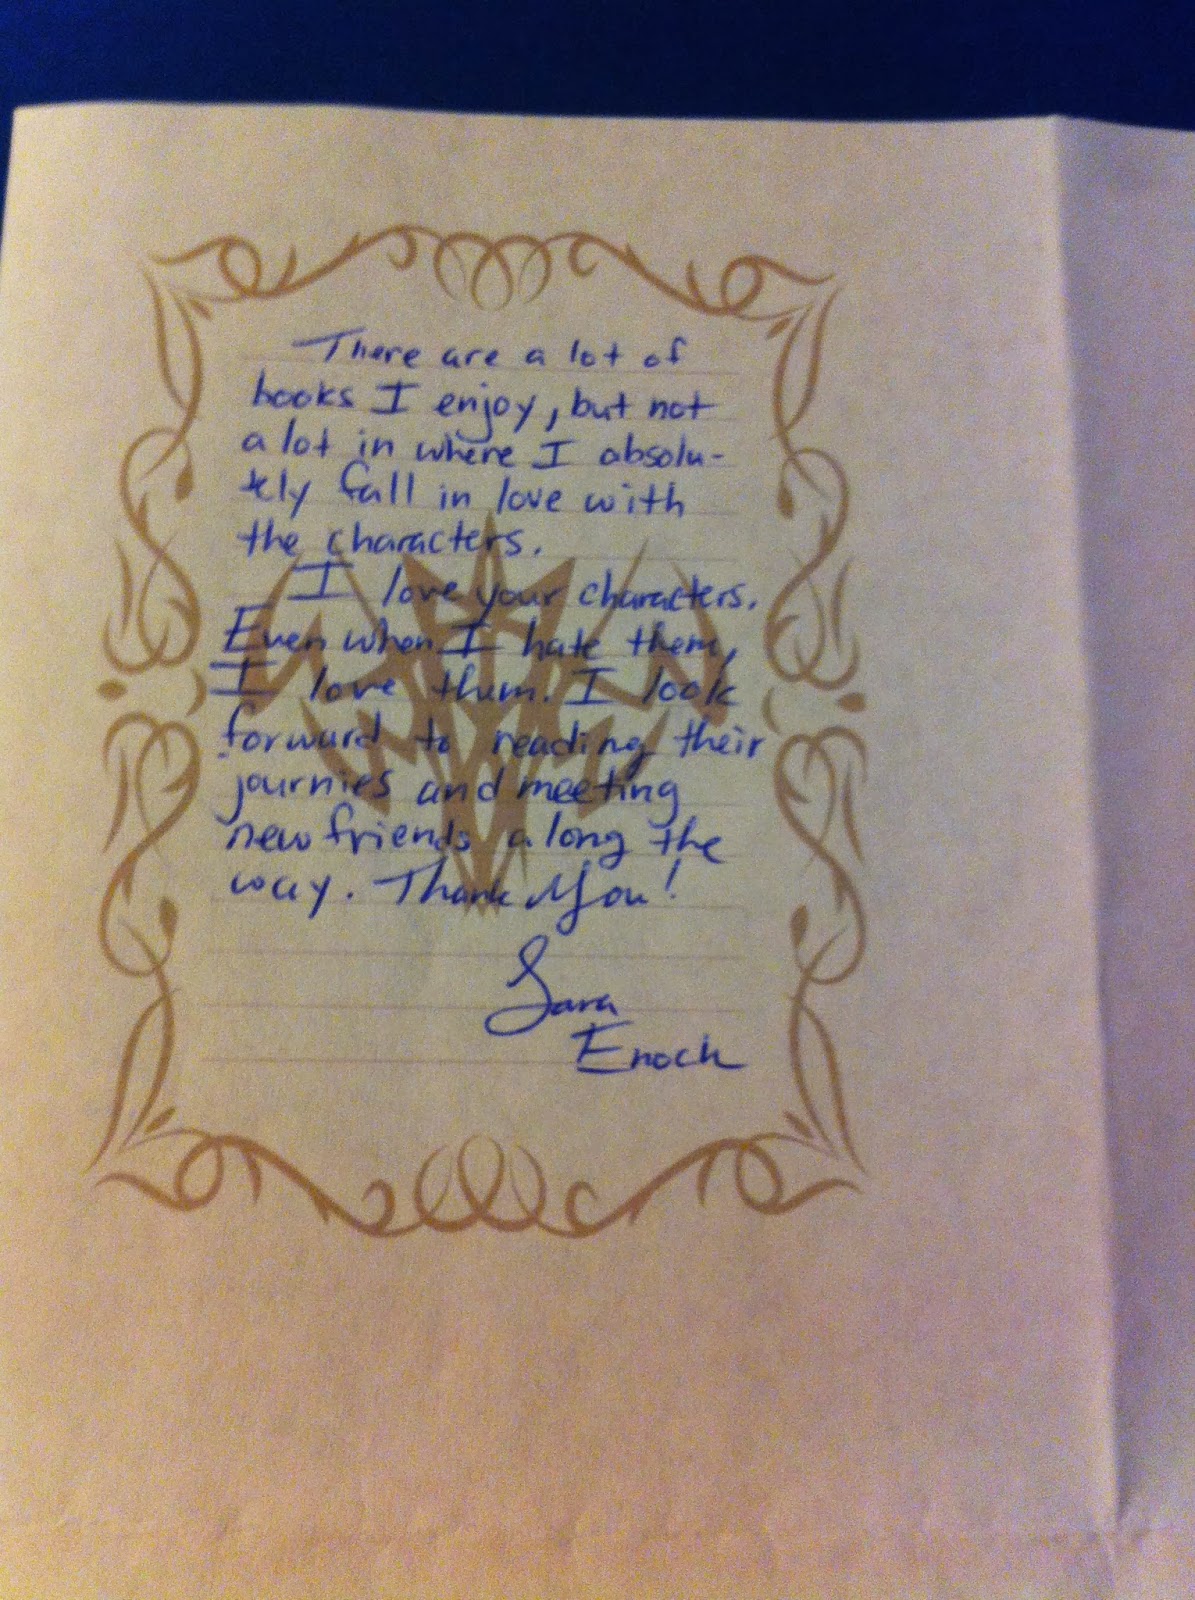 There are a lot of
books I enjoy, but not
a lot in where I absolu-
tely fall in love with
the characters.
I love your characters.
Even when I hate them,
I love them. I look
forward to reading their
journies and meeting
new friends along the
way. Thank You!
Sara
Enoch